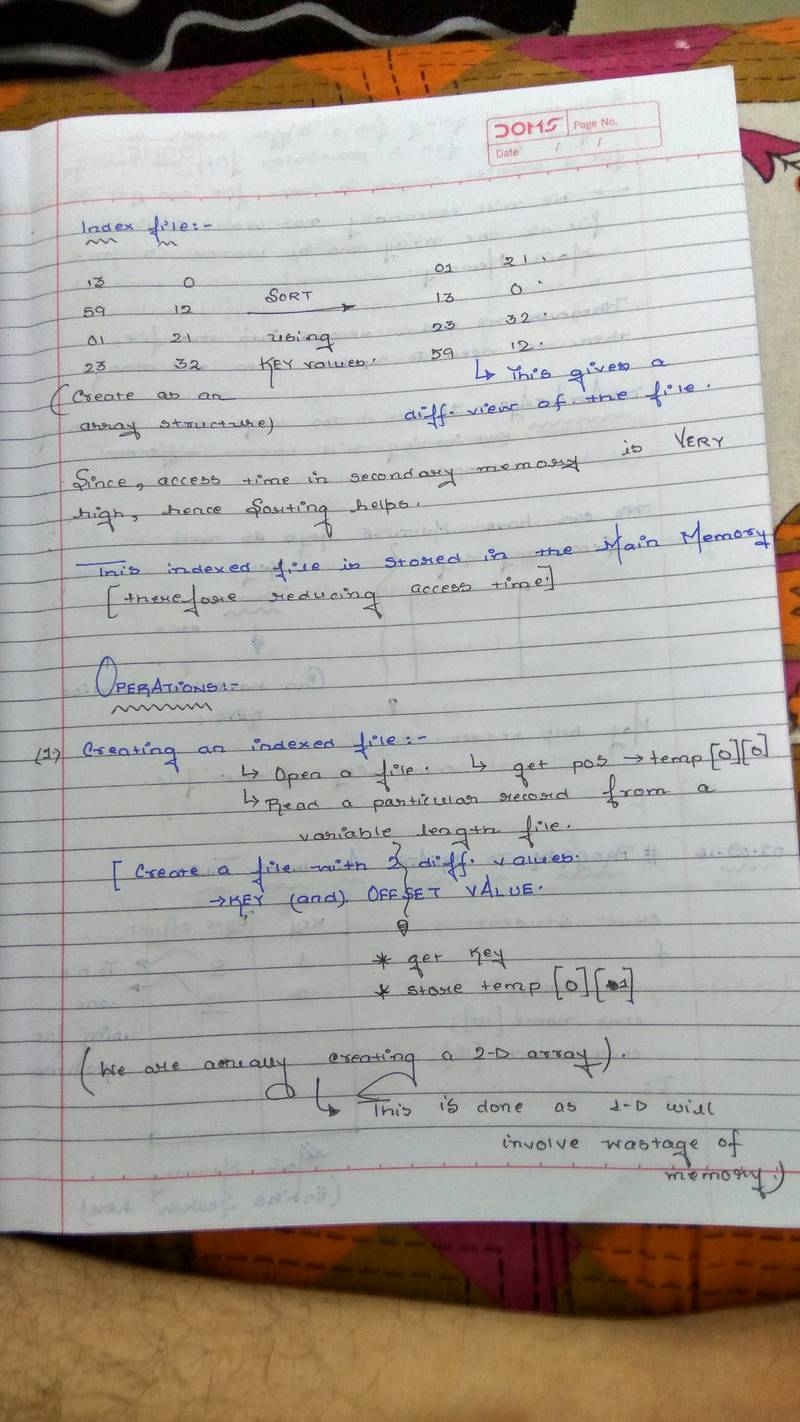 DOMS Page No.
Date / /
Index file:-
13 0 01 21.
59 12 SORT 13 0.
01 21 using 23 32.
23 32 KEY values. 59 12.
(Create as an ↳ This gives a
array structure) diff. view of the file.
Since, access time in secondary memory is VERY
high, hence Sorting helps.
This indexed file is stored in the Main Memory
[therefore reducing access time.]
OPERATIONS:-
(1.) Creating an indexed file:-
↳ Open a file. ↳ get pos → temp [0][0]
↳ Read a particular record from a
variable length file.
[ Create a file with 2 diff. values.
→ KEY (and) OFFSET VALUE.
* get Key
* store temp [0][1]
(We are actually creating a 2-D array).
↳ This is done as 1-D will
involve wastage of
memory.)